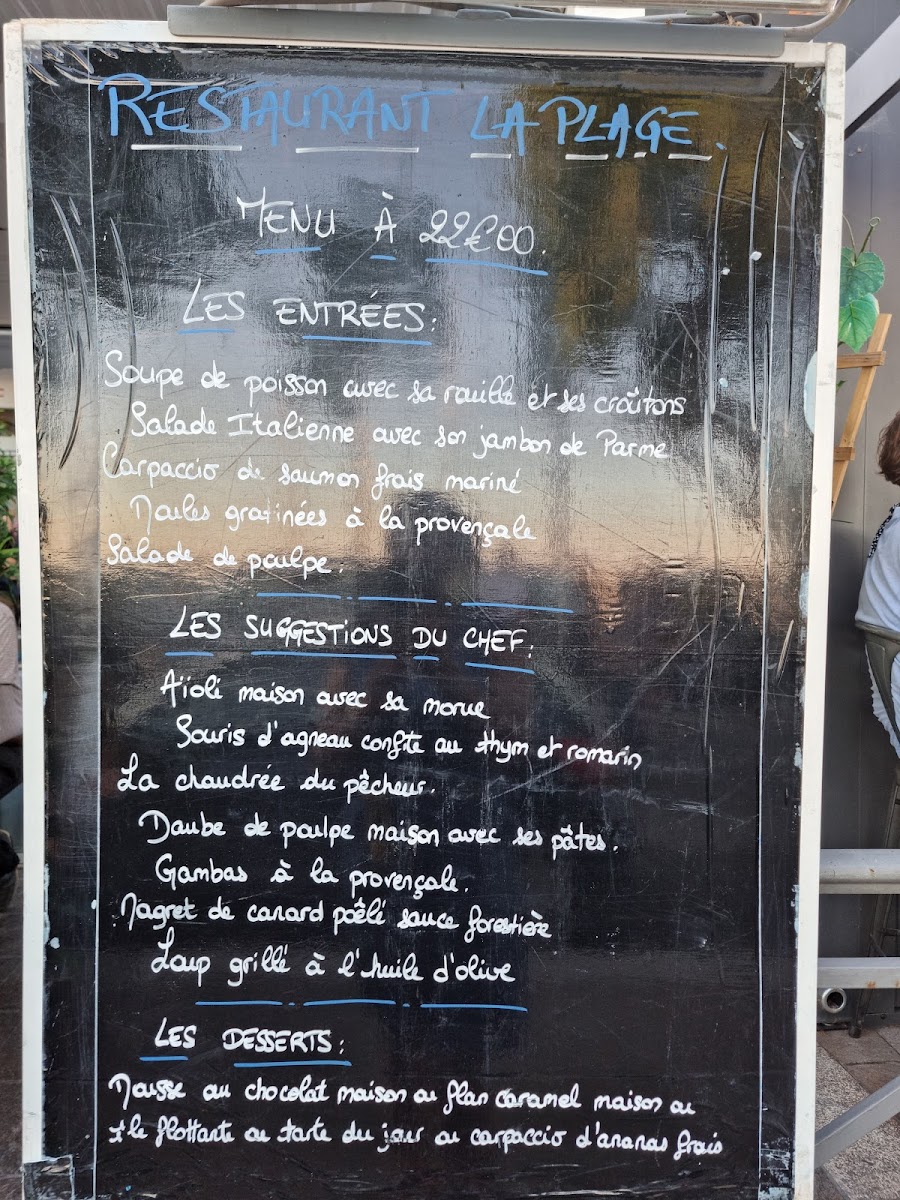 RESTAURANT LA PLAGE.
MENU À 22€00.
LES ENTRÉES:
Soupe de poisson avec sa rouille et ses croûtons
Salade Italienne avec son jambon de Parme
Carpaccio de saumon frais mariné
Moules gratinées à la provençale
Salade de poulpe.
LES SUGGESTIONS DU CHEF:
Aïoli maison avec sa morue
Souris d'agneau confite au thym et romarin
La chaudrée du pêcheur.
Daube de poulpe maison avec ses pâtes.
Gambas à la provençale.
Magret de canard poêlé sauce forestière
Loup grillé à l'huile d'olive
LES DESSERTS:
Mousse au chocolat maison ou flan caramel maison ou
île flottante ou tarte du jour ou carpaccio d'ananas frais